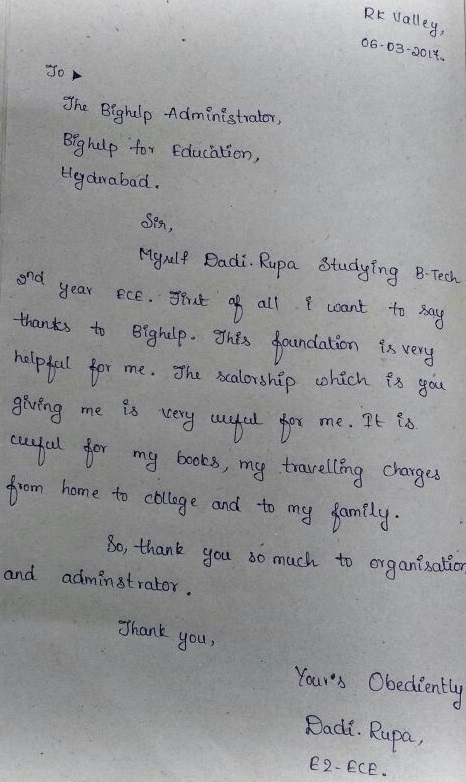 RK Valley,
06-03-2017.
To
The Bighelp Administrator,
Bighelp for Education,
Hyderabad.
Sir,
Myself Dadi. Rupa studying B-Tech
2nd year ECE. First of all i want to say
thanks to Bighelp. This foundation is very
helpful for me. The scalorship which is you
giving me is very useful for me. It is
useful for my books, my travelling charges
from home to college and to my family.
So, thank you so much to organisation
and adminstrator.
Thank you,
Your's Obediently
Dadi. Rupa,
E2-ECE.